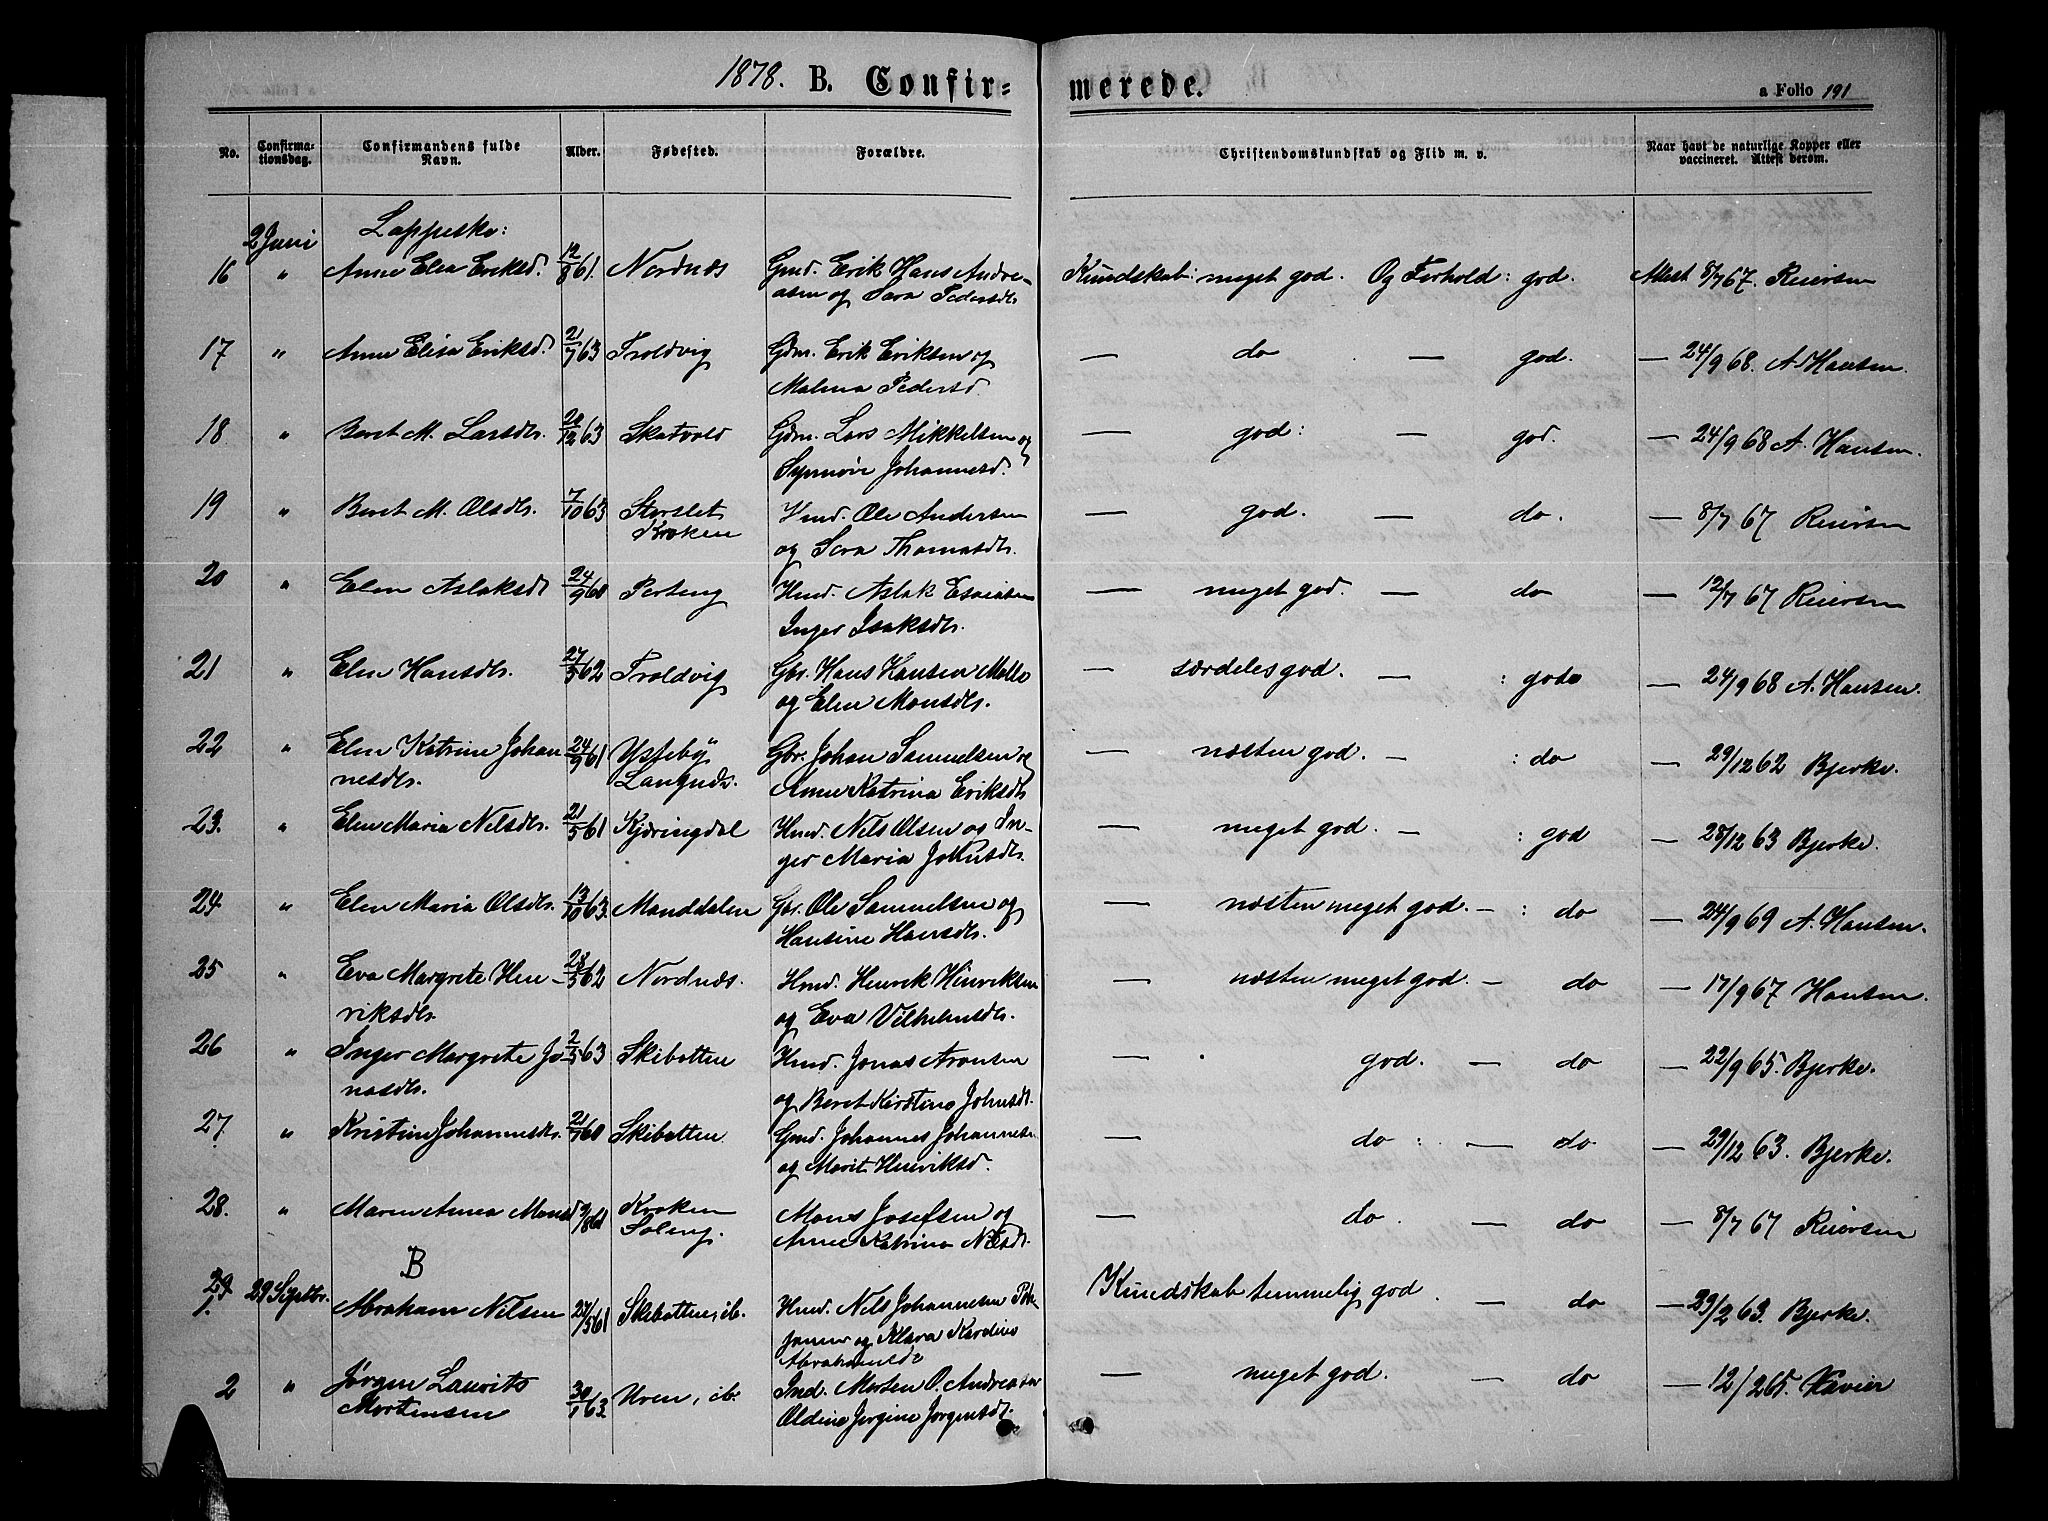 1878. B. Confir-
merede.
a Folio 191
No.
Confirma-
tionsdag.
Confirmandens fulde
Navn.
Alder.
Fødested.
Forældre.
Christendomskundskab og Flid m. v.
Naar havt de naturlige Kopper eller
vaccineret. Attest derom.
2 Juni Lappiske:
16 " Anne Elen Eriksd. 12/8 61. Nordnæs Gmd. Erik Hans Andre-
asen og Sara Pedersdtr Kundskab: meget god. Og Forhold: god. Attest 8/7 67. Reiersen
17 " Anne Elisa Eriksd. 2/7 63 Troldvig Gdm. Erik Eriksen og
Malena Pedersd. — do — god. — 24/9 68. A. Hansen.
18 " Beret M. Larsdtr. 20/12 63 Skatvold Gdm. Lars Mikkelsen og
Synnøve Johannesd. — god: — god. — 24/9 68 A. Hansen.
19 " Beret M. Olsdtr. 7/10 63 Storslet
Kroken Hmd. Ole Andersen
og Sara Thomasdtr. — god. — do. — 8/7 67 Reiersen
20 " Elen Aslaksdt 24/9 60 Porteng Hmd. Aslak Esaiasen
Inger Isaksdtr. — meget god. — do — 12/7 67 Reiersen
21 " Elen Hansdtr. 27/5 62 Troldvig Gbr. Hans Hansen Malla
og Elen Monsdtr. — særdeles god. — : god — 24/9 68 A. Hansen.
22 " Elen Katrine Johan
nesdtr. 24/9 61 Ystebø
Langnæs. Gbr. Johan Samuelsen og
Anne Katrina Eriksdtr — næsten god. — : do — 29/12 62 Bjerke.
23. " Elen Maria Nilsdtr. 21/5 61 Kjøringdal Hmd. Nils Olsen og In-
ger Maria Johnsdtr. — meget god. — : god — 28/12 63 Bjerke.
24 " Elen Maria Olsdtr. 13/10 63. Manddalen Gbr. Ole Samuelsen og
Hansine Hansdtr. — næsten meget god. — : do — 24/9 69 A. Hansen.
25 " Eva Margrete Hen-
riksdtr 28/5 62 Nordnæs. Hmd. Henrik Hinriksen
og Eva Vilhelmsdtr. — næsten meget god. — do — 17/9 67 Hansen.
26 " Inger Margrete Jo
nasdtr. 2/5 63 Skibotten Hmd. Jonas Aronsen
og Beret Kirstina Johnsdt. — god. — do — 22/9 65. Bjerke.
27. " Kristine Johannesdtr. 21/7 60 Skibotten Gmd. Johannes Johannesen
og Marit Henriksd. — do : — do. — 29/12 63. Bjerke.
28. " Maren Anna Monsd 3/8 61 Kroken
Soleng. Mons Josefsen og
Anne Katrina Nilsdt. — do. — do — 8/7 67 Reiersen
B
29
1. 29 Septbr. Abraham Nilsen 27/5 61 Skibotten, ib. Hmd. Nils Johannesen
og Klara Kardine
Abrahamsdr Kundskab temmelig god. — do — 29/12 63. Bjerke.
2 " Jørgen Lauvits
Mortensen 30/1 63 Uren, ib. Ind. Morten O. Andreasen
Oldine Jørgine Jørgensdt. — meget god. — do — Xavier